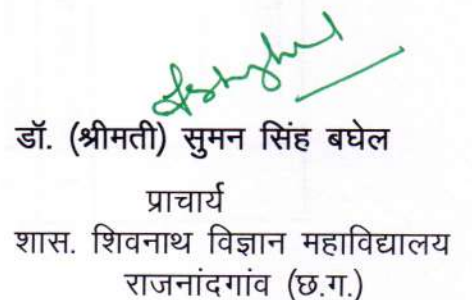 डॉ. (श्रीमती) सुमन सिंह बघेल
प्राचार्य
शास. शिवनाथ विज्ञान महाविद्यालय
राजनांदगांव (छ.ग.)